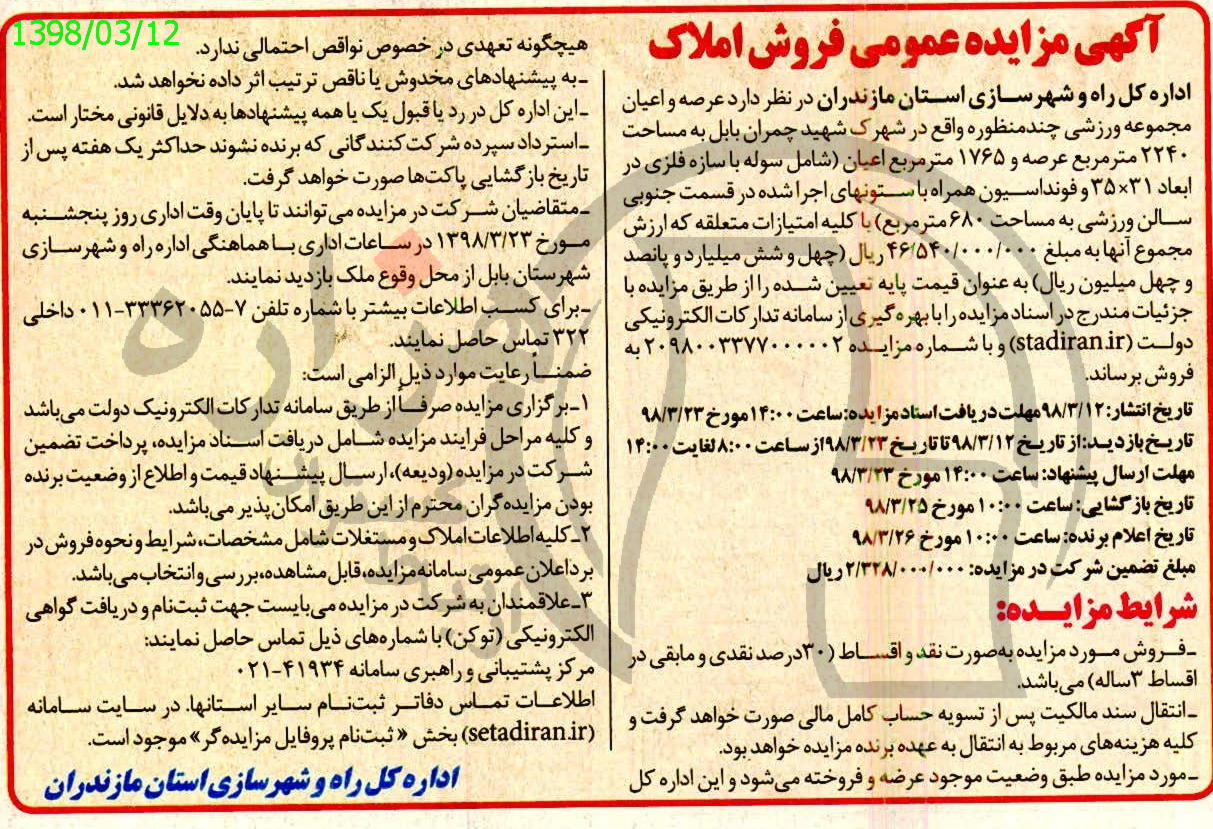 1398/03/12
آگهی مزایده عمومی فروش املاک
اداره کل راه و شهرسازی استان مازندران در نظر دارد عرصه و اعیان
مجموعه ورزشی چندمنظوره واقع در شهرک شهید چمران بابل به مساحت
۲۲۴۰ مترمربع عرصه و ۱۷۶۵ مترمربع اعیان (شامل سوله با سازه فلزی در
ابعاد ۳۱×۳۵ و فونداسیون همراه با ستونهای اجرا شده در قسمت جنوبی
سالن ورزشی به مساحت ۶۸۰ مترمربع) با کلیه امتیازات متعلقه که ارزش
مجموع آنها به مبلغ ۴۶/۵۴۰/۰۰۰/۰۰۰ ریال (چهل و شش میلیارد و پانصد
و چهل میلیون ریال) به عنوان قیمت پایه تعیین شده را از طریق مزایده با
جزئیات مندرج در اسناد مزایده را با بهره گیری از سامانه تدارکات الکترونیکی
دولت (stadiran.ir) و با شماره مزایده ۲۰۹۸۰۰۳۳۷۷۰۰۰۰۰۲ به
فروش برساند.
تاریخ انتشار: ۹۸/۳/۱۲ مهلت دریافت اسناد مزایده: ساعت ۱۴:۰۰ مورخ ۹۸/۳/۲۳
تاریخ بازدید: از تاریخ ۹۸/۳/۱۲ تا تاریخ ۹۸/۳/۲۳ از ساعت ۸:۰۰ لغایت ۱۴:۰۰
مهلت ارسال پیشنهاد: ساعت ۱۴:۰۰ مورخ ۹۸/۳/۲۳
تاریخ بازگشایی: ساعت ۱۰:۰۰ مورخ ۹۸/۳/۲۵
تاریخ اعلام برنده: ساعت ۱۰:۰۰ مورخ ۹۸/۳/۲۶
مبلغ تضمین شرکت در مزایده: ۲/۳۲۸/۰۰۰/۰۰۰ ریال
شرایط مزایده:
-فروش مورد مزایده به‌صورت نقد و اقساط (۳۰درصد نقدی و مابقی در
اقساط ۳ساله) می‌باشد.
-انتقال سند مالکیت پس از تسویه حساب کامل مالی صورت خواهد گرفت و
کلیه هزینه‌های مربوط به انتقال به عهده برنده مزایده خواهد بود.
-مورد مزایده طبق وضعیت موجود عرضه و فروخته می‌شود و این اداره کل
هیچگونه تعهدی در خصوص نواقص احتمالی ندارد.
-به پیشنهادهای مخدوش یا ناقص ترتیب اثر داده نخواهد شد.
-این اداره کل در رد یا قبول یک یا همه پیشنهادها به دلایل قانونی مختار است.
-استرداد سپرده شرکت کنندگانی که برنده نشوند حداکثر یک هفته پس از
تاریخ بازگشایی پاکت‌ها صورت خواهد گرفت.
-متقاضیان شرکت در مزایده می‌توانند تا پایان وقت اداری روز پنجشنبه
مورخ ۱۳۹۸/۳/۲۳ در ساعات اداری با هماهنگی اداره راه و شهرسازی
شهرستان بابل از محل وقوع ملک بازدید نمایند.
-برای کسب اطلاعات بیشتر با شماره تلفن ۷-۳۳۳۶۲۰۵۵-۰۱۱ داخلی
۳۲۲ تماس حاصل نمایند.
ضمناً رعایت موارد ذیل الزامی است:
۱-برگزاری مزایده صرفاً از طریق سامانه تدارکات الکترونیک دولت می‌باشد
و کلیه مراحل فرایند مزایده شامل دریافت اسناد مزایده، پرداخت تضمین
شرکت در مزایده (ودیعه)، ارسال پیشنهاد قیمت و اطلاع از وضعیت برنده
بودن مزایده‌گران محترم از این طریق امکان‌پذیر می‌باشد.
۲-کلیه اطلاعات املاک و مستغلات شامل مشخصات، شرایط و نحوه فروش در
برد اعلان عمومی سامانه مزایده، قابل مشاهده، بررسی و انتخاب می‌باشد.
۳-علاقمندان به شرکت در مزایده می‌بایست جهت ثبت‌نام و دریافت گواهی
الکترونیکی (توکن) با شماره‌های ذیل تماس حاصل نمایند:
مرکز پشتیبانی و راهبری سامانه ۴۱۹۳۴-۰۲۱
اطلاعات تماس دفاتر ثبت‌نام سایر استانها، در سایت سامانه
(setadiran.ir) بخش «ثبت‌نام پروفایل مزایده‌گر» موجود است.
اداره کل راه و شهرسازی استان مازندران